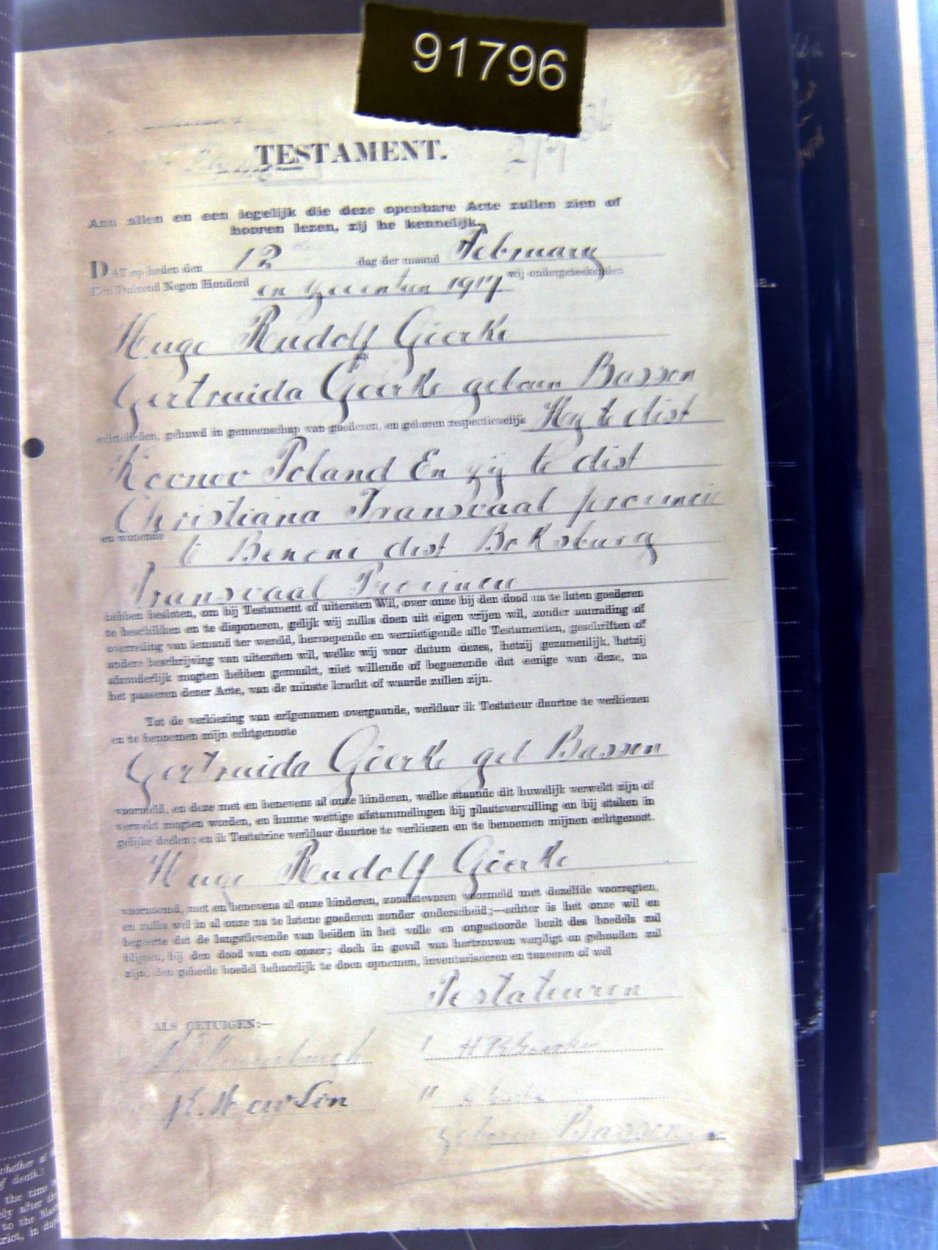 91796
TESTAMENT.
Aan allen en een iegelijk die deze openbare Acte zullen zien of
hooren lezen, zij he kennelijk,
DAT op heden den 12 dag der maand February
Een Duizend Negen Honderd en 1917 wij ondergeteekenden
Hugo Rudolf Gierke
en
Gertruida Gierke geboren Bassen
echtelieden, gehuwd in gemeenschap van goederen, en geboren respectievelijk Hy te dist
Poland En zij te dist
Christiana Transvaal provincie
en wonende te Benoni dist Boksburg
Transvaal Provincie
hebben besloten, om bij Testament of uitersten Wil, over onze bij den dood na te laten goederen
te beschikken en te disponeren, gelijk wij zulks doen uit eigen vrijen wil, zonder aanrading of
overreding van iemand ter wereld, herroepende en vernietigende alle Testamenten, geschriften of
andere beschrijving van uitersten wil, welke wij voor datum dezes, hetzij gezamenlijk, hetzij
afzonderlijk mogten hebben gemaakt, niet willende of begeerende dat eenige van deze, na
het passeren dezer Acte, van de minste kracht of waarde zullen zijn.
Tot de verkiezing van erfgenamen overgaande, verklaar ik Testateur daartoe te verkiezen
en te benoemen mijn echtgenoote
Gertruida Gierke geb Bassen
voormeld, en deze met en benevens al onze kinderen, welke staande dit huwelijk verwekt zijn of
verwekt mogten worden, en hunne wettige afstammelingen bij plaatsvervulling en bij staken in
gelijke deelen; en ik Testatrice verklaar daartoe te verkiezen en te benoemen mijnen echtgenoot.
Hugo Rudolf Gierke
voornoemd, met en benevens al onze kinderen, zooalstevoren voormeld met dezelfde voorregten,
en zulks wel in al onze na te latene goederen zonder onderscheid;—echter is het onze wil en
begeerte dat de langstlevende van beiden in het volle en ongestoorde bezit des boedels zal
blijven, bij den dood van een onzer; doch in geval van hertrouwen verpligt en gehouden zal
zijn, den geheele boedel behoorlijk te doen opnemen, inventariseeren en taxeeren of wel
Testateuren
ALS GETUIGEN:—
H R Gierke
geboren Bassen